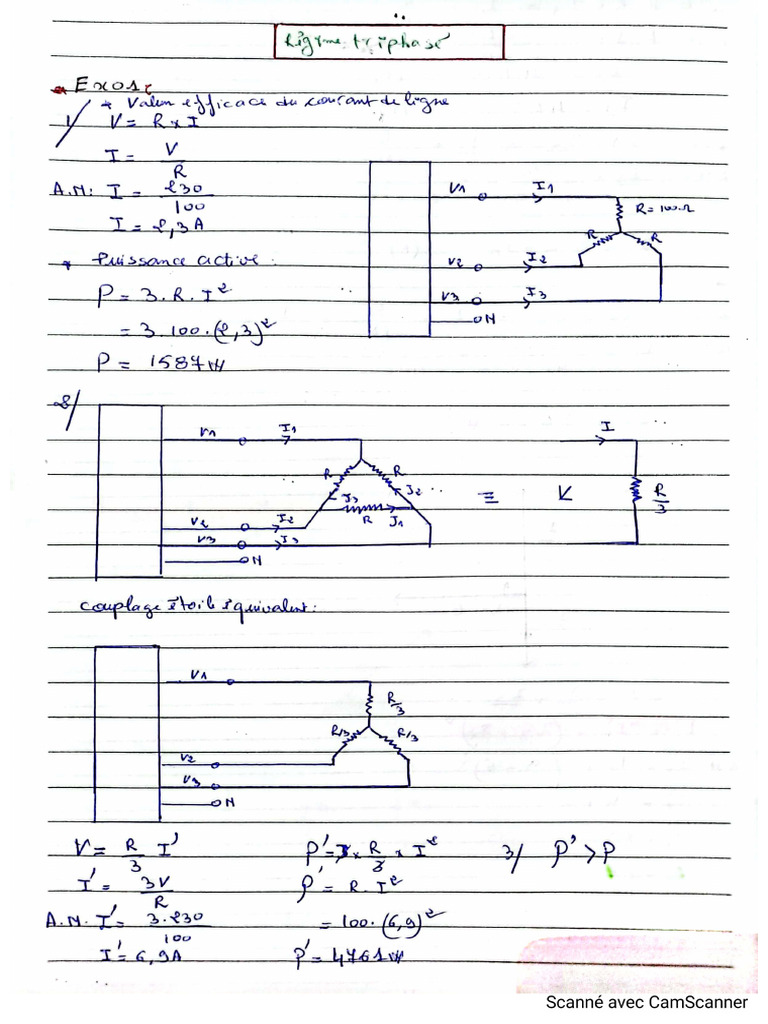 Régime triphasé
* Exo1:
1/ * Valeur efficace du courant de ligne
V = R x I
I = V/R
A.N: I = 230/100
I = 2,3A
* Puissance active:
P = 3.R.I²
= 3.100.(2,3)²
P = 1587W
V1 I1 R=100Ω
R R
V2 I2
V3 I3
N
2/
V1 I1 I
R R
J3 J2 ≡ V R/3
V2 I2 R J1
V3 I3
N
couplage étoile équivalent:
V1
R/3
R/3 R/3
V2
V3
N
V = R/3 I'
I' = 3V/R
A.N. I' = 3.230/100
I' = 6,9A
P' = 3 x R/3 x I²
P' = R.I²
= 100.(6,9)²
P' = 4761W
3/ P' > P
Scanné avec CamScanner